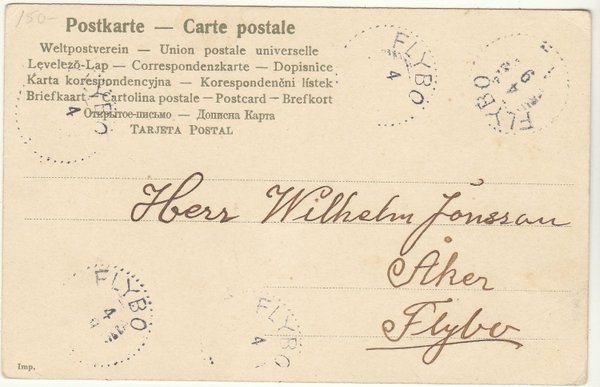 150-
Postkarte — Carte postale
Weltpostverein — Union postale universelle
Levelező-Lap — Correspondenzkarte — Dopisnice
Karta korespondencyjna — Korespondenční lístek
Briefkaart — Cartolina postale — Postcard — Brefkort
Открытое-письмо — Дописна Карта
Tarjeta Postal
FLYBO
4
FLYBO
4
FLYBO
4
9
Herr Wilhelm Jönsson
Åker
Flybo
FLYBO
4
FLYBO
4
Imp.